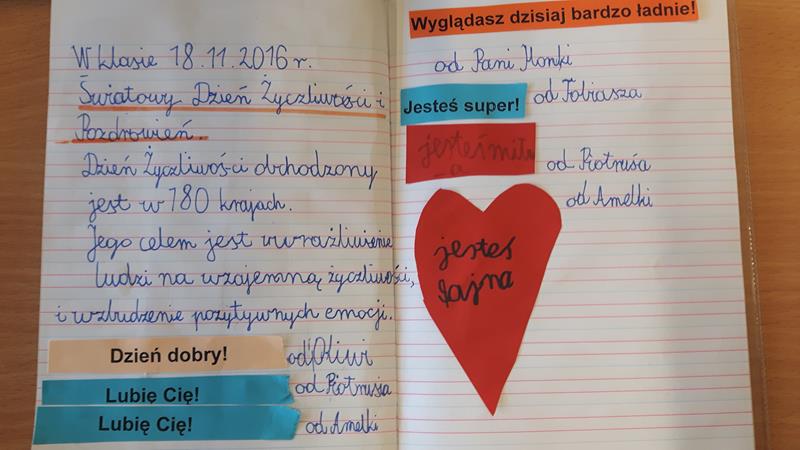 W klasie 18.11.2016 r.
Światowy Dzień Życzliwości i
Pozdrowień.
Dzień Życzliwości obchodzony
jest w 180 krajach.
Jego celem jest uwrażliwienie
ludzi na wzajemną życzliwości,
i wzbudzenie pozytywnych emocji.
Dzień dobry! od Oliwi
Lubię Cię! od Piotrusia
Lubię Cię! od Amelki
Wyglądasz dzisiaj bardzo ładnie!
od Pani Monki
Jesteś super! od Tobiasza
jesteś miła od Piotrusia
od Amelki
jesteś
fajna